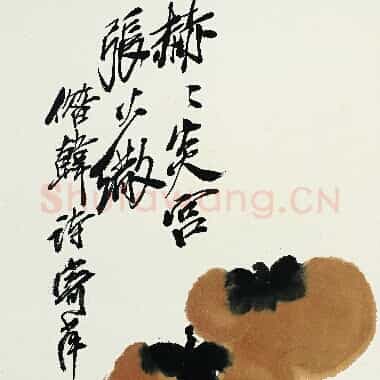 赫〻炎官
張火繖
借韓詩寄萍
Shufawang.CN